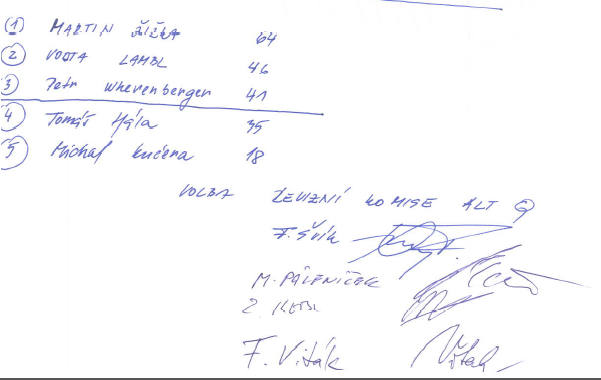 1 MARTIN ŽIŽKA 64
2 VOJTA LAMBL 46
3 Petr Wherenberger 41
4 Tomáš Hála 35
5 Michal Kučera 18
VOLBA REVIZNÍ KOMISE ALT
F. Švík
M. PÁLENÍČEK
Z.
F. Viták Viták